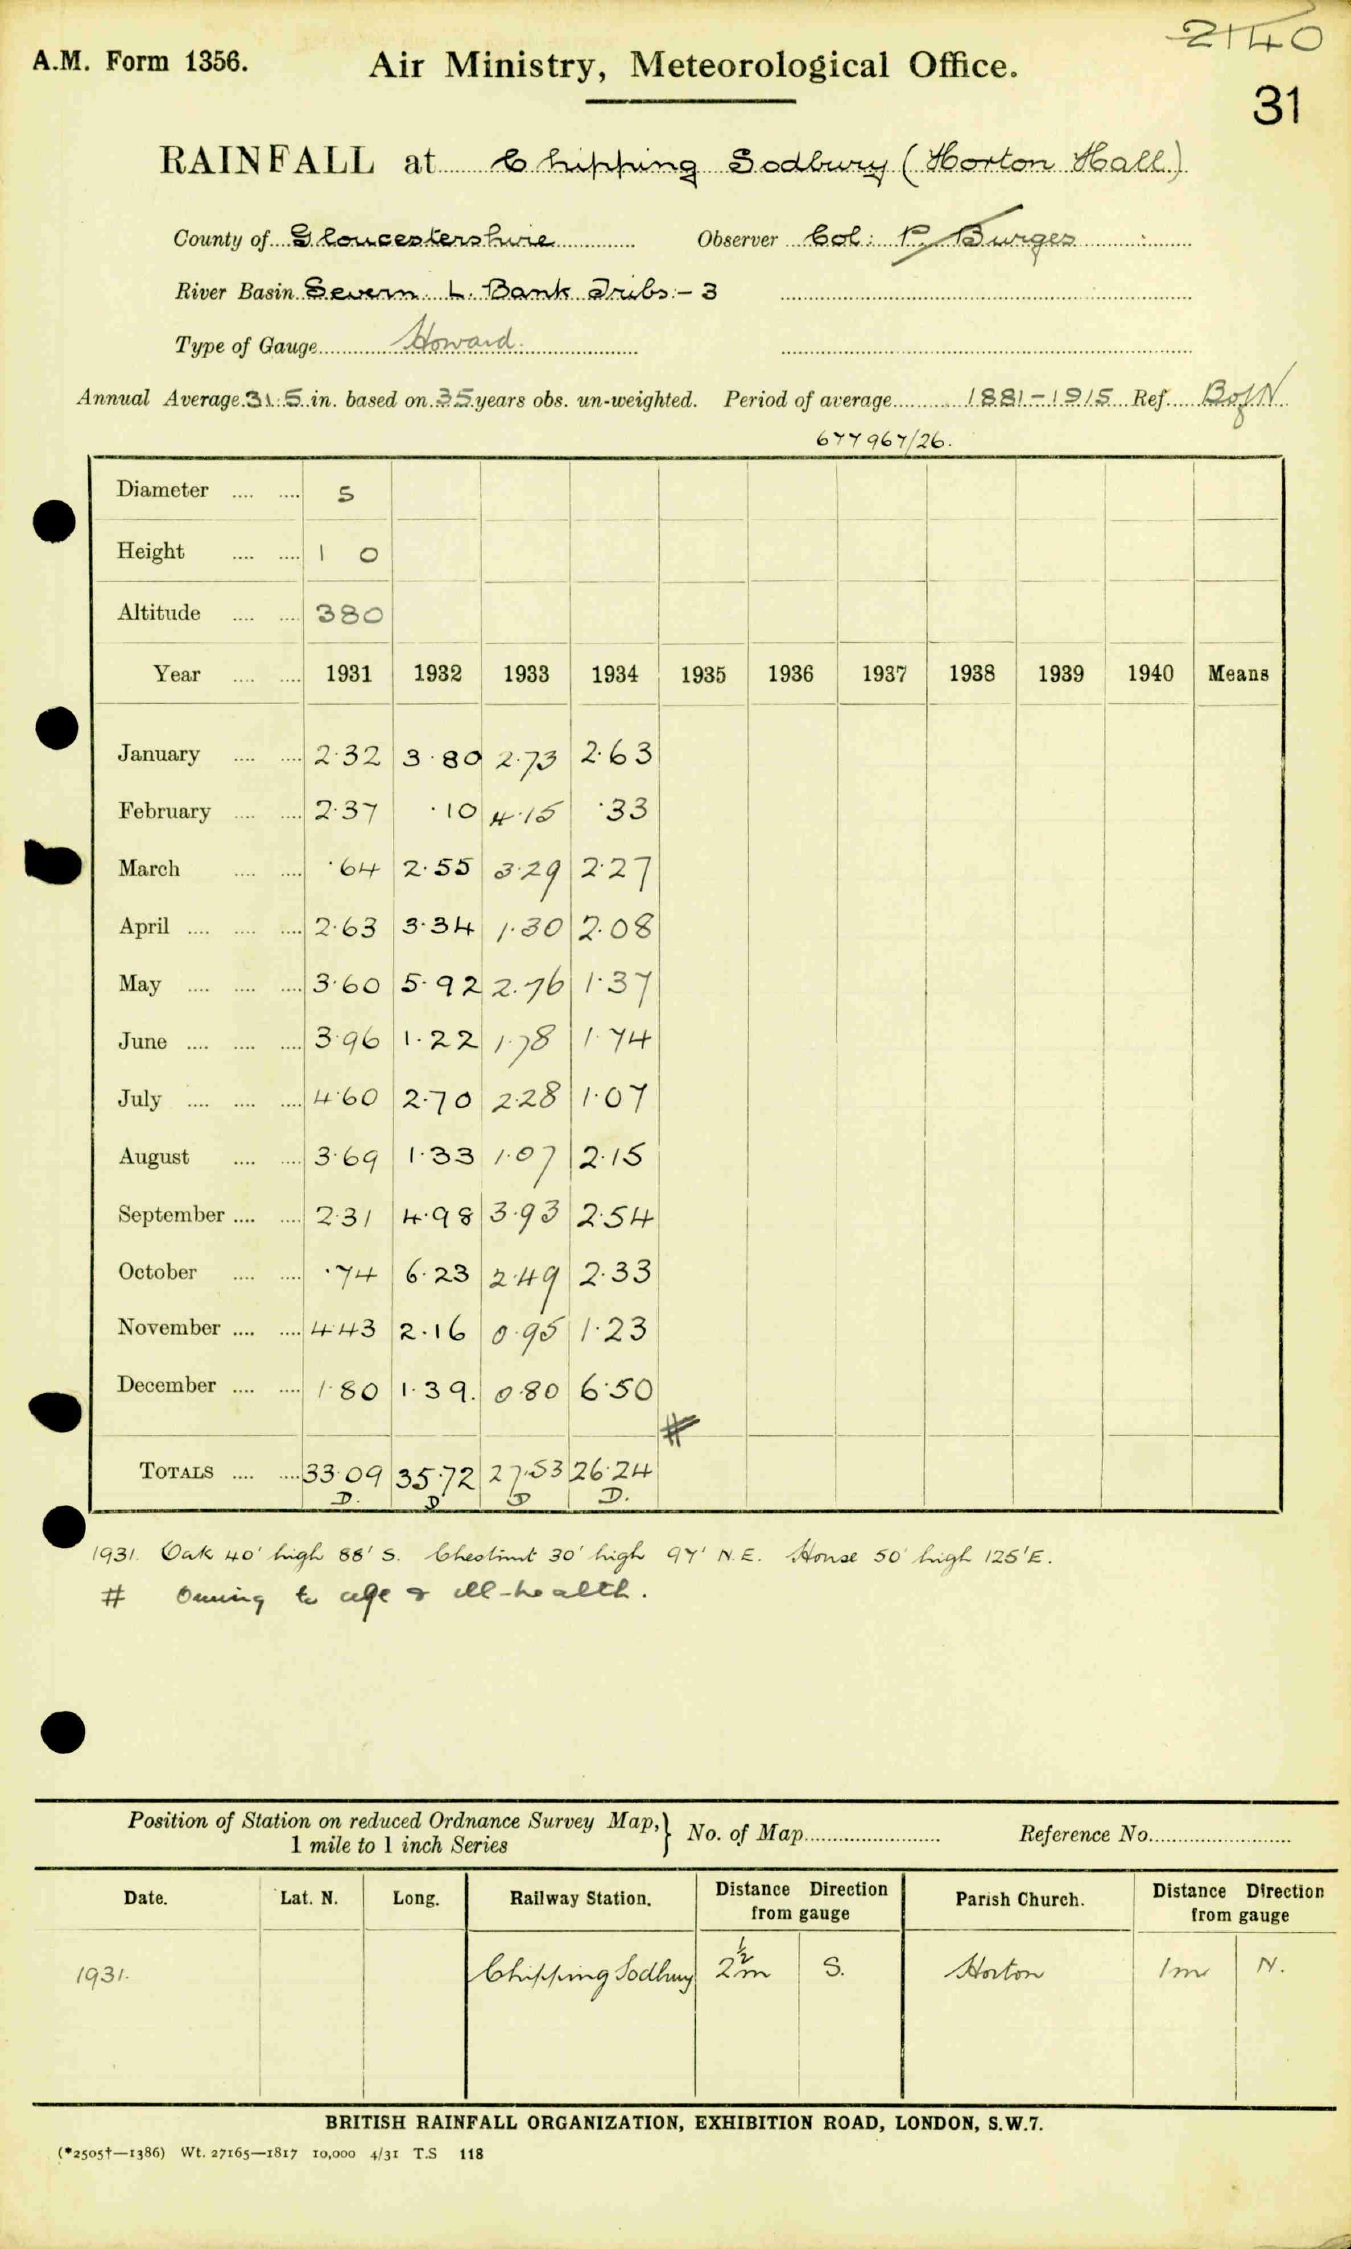 2140
A.M. Form 1356. Air Ministry, Meteorological Office.
31
RAINFALL at Chipping Sodbury (Horton Hall)
County of Gloucestershire Observer Col: P. Burges
River Basin Severn L. Bank Tribs:- 3
Type of Gauge Howard.
Annual Average 31.5 in. based on 35 years obs. un-weighted. Period of average 1881-1915 Ref. B of N
677967/26.
Diameter .... .... 5
Height .... .... 1 0
Altitude .... .... 380
Year .... .... 1931 1932 1933 1934 1935 1936 1937 1938 1939 1940 Means
January .... .... 2.32 3.80 2.73 2.63
February .... .... 2.37 .10 4.15 .33
March .... .... .64 2.55 3.29 2.27
April .... .... .... 2.63 3.34 1.30 2.08
May .... .... .... 3.60 5.92 2.76 1.37
June .... .... .... 3.96 1.22 1.78 1.74
July .... .... .... 4.60 2.70 2.28 1.07
August .... .... 3.69 1.33 1.07 2.15
September .... .... 2.31 4.98 3.93 2.54
October .... .... .74 6.23 2.49 2.33
November .... .... 4.43 2.16 0.95 1.23
December .... .... 1.80 1.39. 0.80 6.50
#
TOTALS .... .... 33.09 35.72 27.53 26.24
D. D D D.
1931. Oak 40' high 88' S. Chestnut 30' high 97' N.E. House 50' high 125' E.
# Owing to age & ill-health.
Position of Station on reduced Ordnance Survey Map, } No. of Map Reference No.
1 mile to 1 inch Series
Date. Lat. N. Long. Railway Station. Distance Direction from gauge Parish Church. Distance Direction from gauge
1931. Chipping Sodbury 2½m S. Horton 1m N.
BRITISH RAINFALL ORGANIZATION, EXHIBITION ROAD, LONDON, S.W.7.
(*2505†—1386) Wt. 27165—1817 10,000 4/31 T.S 118